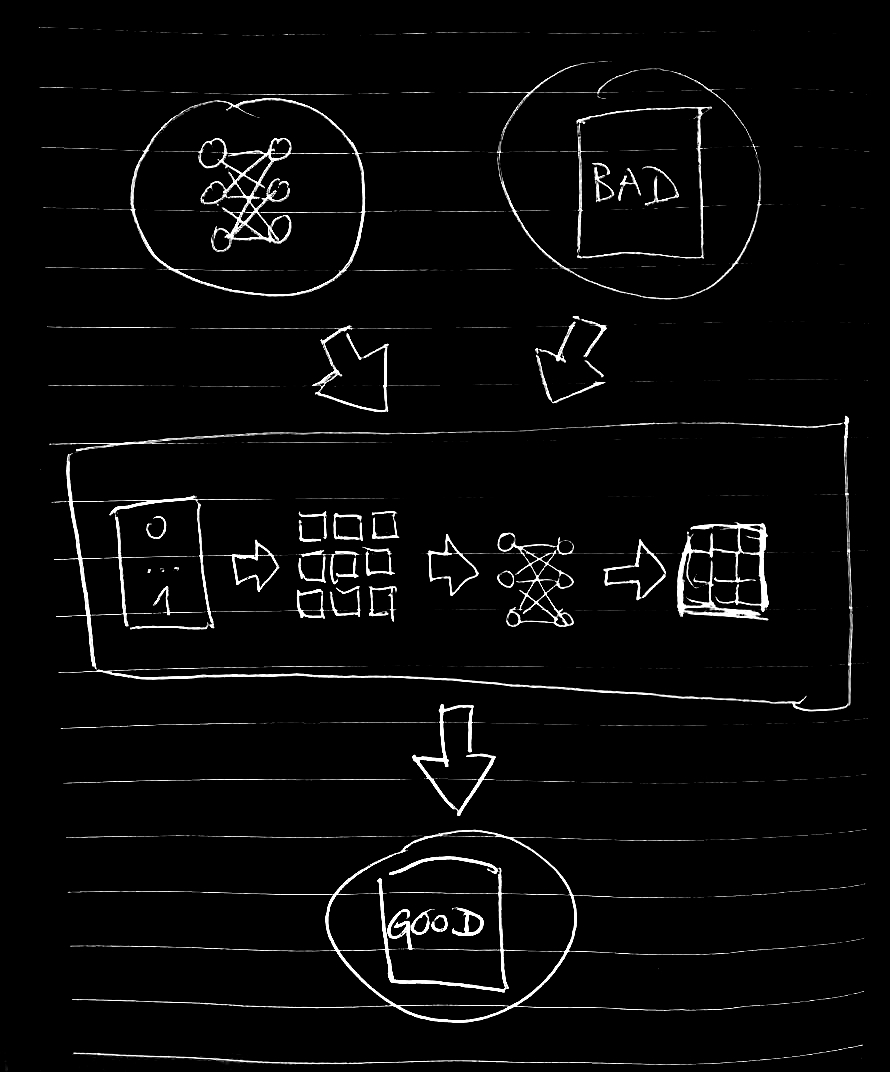 BAD
0
...
1
GOOD